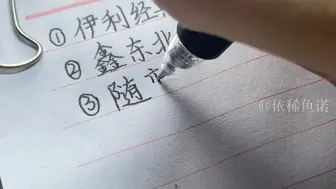 ①伊利经
②鑫东北
③随
@依稀鱼诺